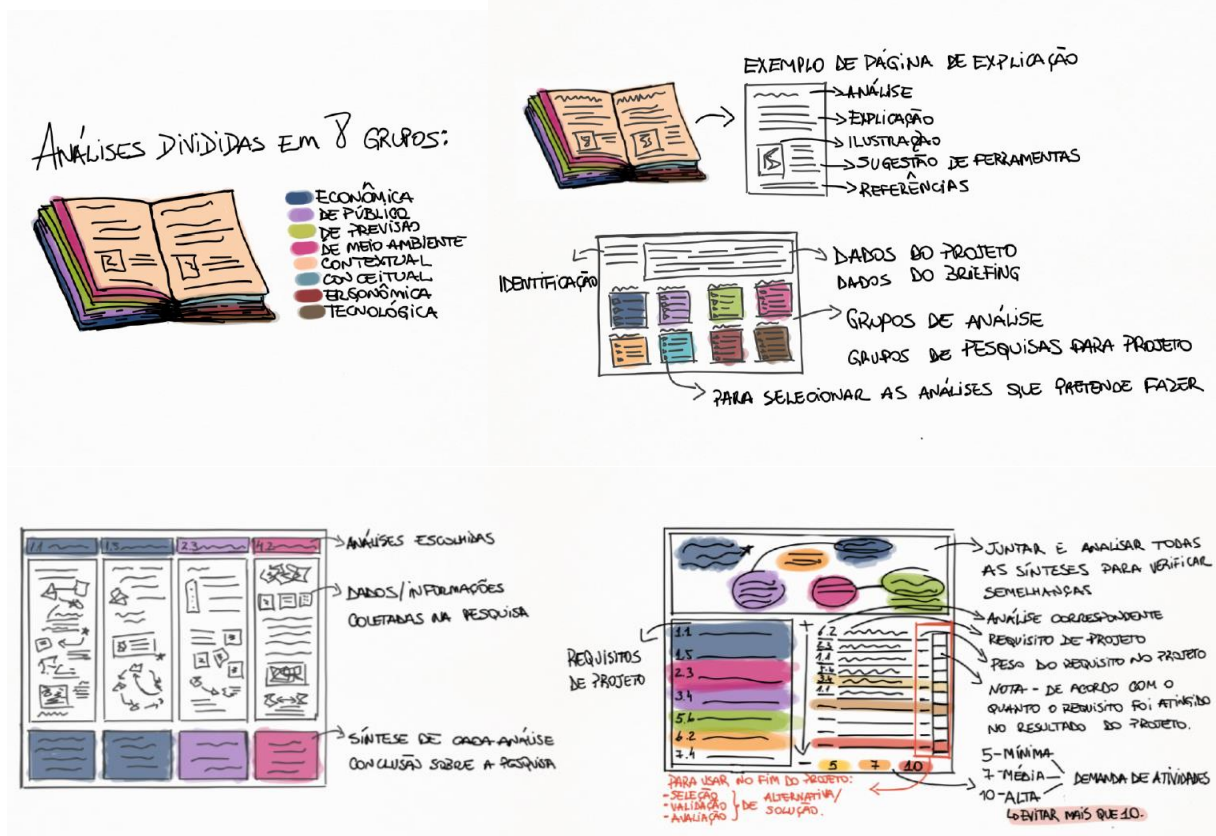 ANÁLISES DIVIDIDAS EM 8 GRUPOS:
ECONÔMICA
DE PÚBLICO
DE PREVISÃO
DE MEIO AMBIENTE
CONTEXTUAL
CONCEITUAL
ERGONÔMICA
TECNOLÓGICA
EXEMPLO DE PÁGINA DE EXPLICAÇÃO
ANÁLISE
EXPLICAÇÃO
ILUSTRAÇÃO
SUGESTÃO DE FERRAMENTAS
REFERÊNCIAS
IDENTIFICAÇÃO
DADOS DO PROJETO
DADOS DO BRIEFING
GRUPOS DE ANÁLISE
GRUPOS DE PESQUISAS PARA PROJETO
PARA SELECIONAR AS ANÁLISES QUE PRETENDE FAZER
1.1
1.5
2.3
4.2
ANÁLISES ESCOLHIDAS
DADOS/INFORMAÇÕES
COLETADAS NA PESQUISA
SÍNTESE DE CADA ANÁLISE
CONCLUSÃO SOBRE A PESQUISA
JUNTAR E ANALISAR TODAS
AS SÍNTESES PARA VERIFICAR
SEMELHANÇAS
ANÁLISE CORRESPONDENTE
REQUISITO DE PROJETO
PESO DO REQUISITO NO PROJETO
NOTA - DE ACORDO COM O
QUANTO O REQUISITO FOI ATINGIDO
NO RESULTADO DO PROJETO.
REQUISITOS
DE PROJETO
1.1
1.5
2.3
3.4
5.6
6.2
7.4
+
6.2
2.3
1.1
3.4
1.1
-
5
7
10
5-MÍNIMA
7-MÉDIA
10-ALTA
DEMANDA DE ATIVIDADES
EVITAR MAIS QUE 10.
PARA USAR NO FIM DO PROJETO:
-SELEÇÃO
-VALIDAÇÃO
-AVALIAÇÃO
DE ALTERNATIVA/
SOLUÇÃO.